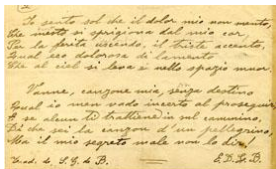 Io sento sol che il dolor mio non mento,
Che mesto si sprigiona dal mio cor
Per la ferita uscendo, il triste accento,
Qual eco dolorosa di lamento
Che al ciel si leva e nello spazio muor.
Vanne, canzone mia, senza destino
Qual io men vado incerto al proseguir
E se alcun ti trattiene in sul cammino,
Di' che sei la canzon d'un pellegrino
Ma il mio segreto male non lo dir!
Trad. de S. G. de B.
E. D. G. B.